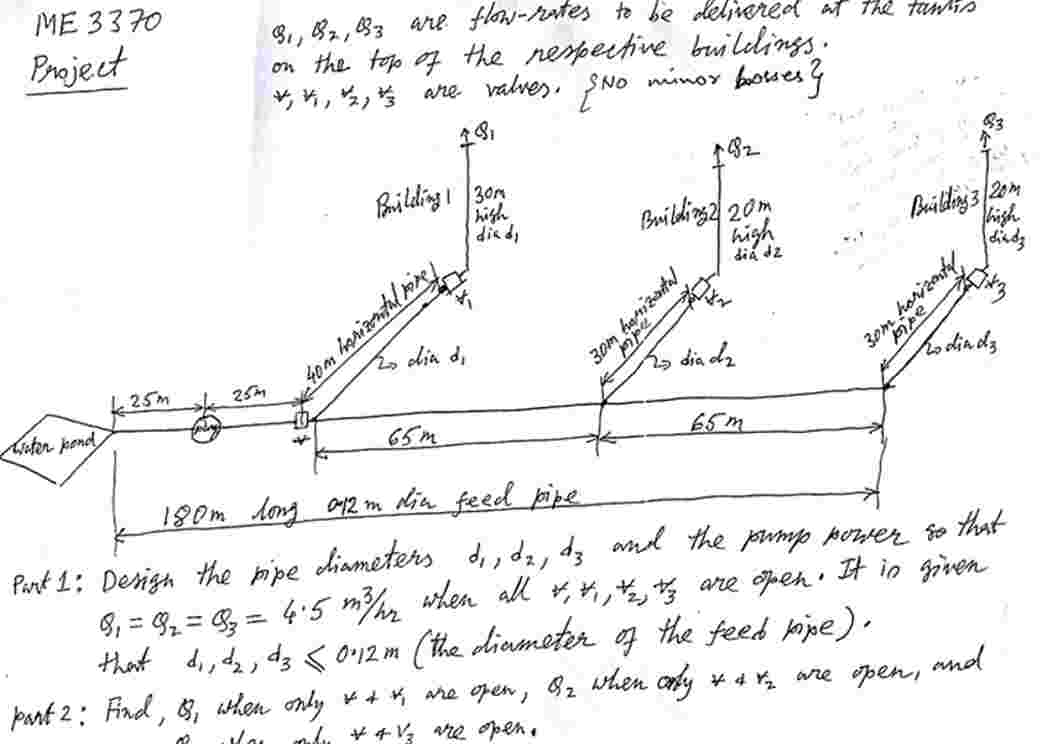 ME 3370
Project
Q1, Q2, Q3 are flow-rates to be delivered at the tanks
on the top of the respective buildings.
V, V1, V2, V3 are valves. {No minor losses}
Q1
Q2
Q3
Building 1
30m
high
dia d1
Building 2
20m
high
dia d2
Building 3
20m
high
dia d3
40m horizontal pipe
V1
30m horizontal
pipe
V2
30m horizontal
pipe
V3
dia d1
dia d2
dia d3
25m
25m
water pond
V
65 m
65 m
180m long 0.12 m dia feed pipe
Part 1: Design the pipe diameters d1, d2, d3 and the pump power so that
Q1 = Q2 = Q3 = 4.5 m³/hr when all V, V1, V2, V3 are open. It is given
that d1, d2, d3 ≤ 0.12 m (the diameter of the feed pipe).
part 2: Find, Q1 when only V & V1 are open, Q2 when only V & V2 are open, and
only V & V3 are open.